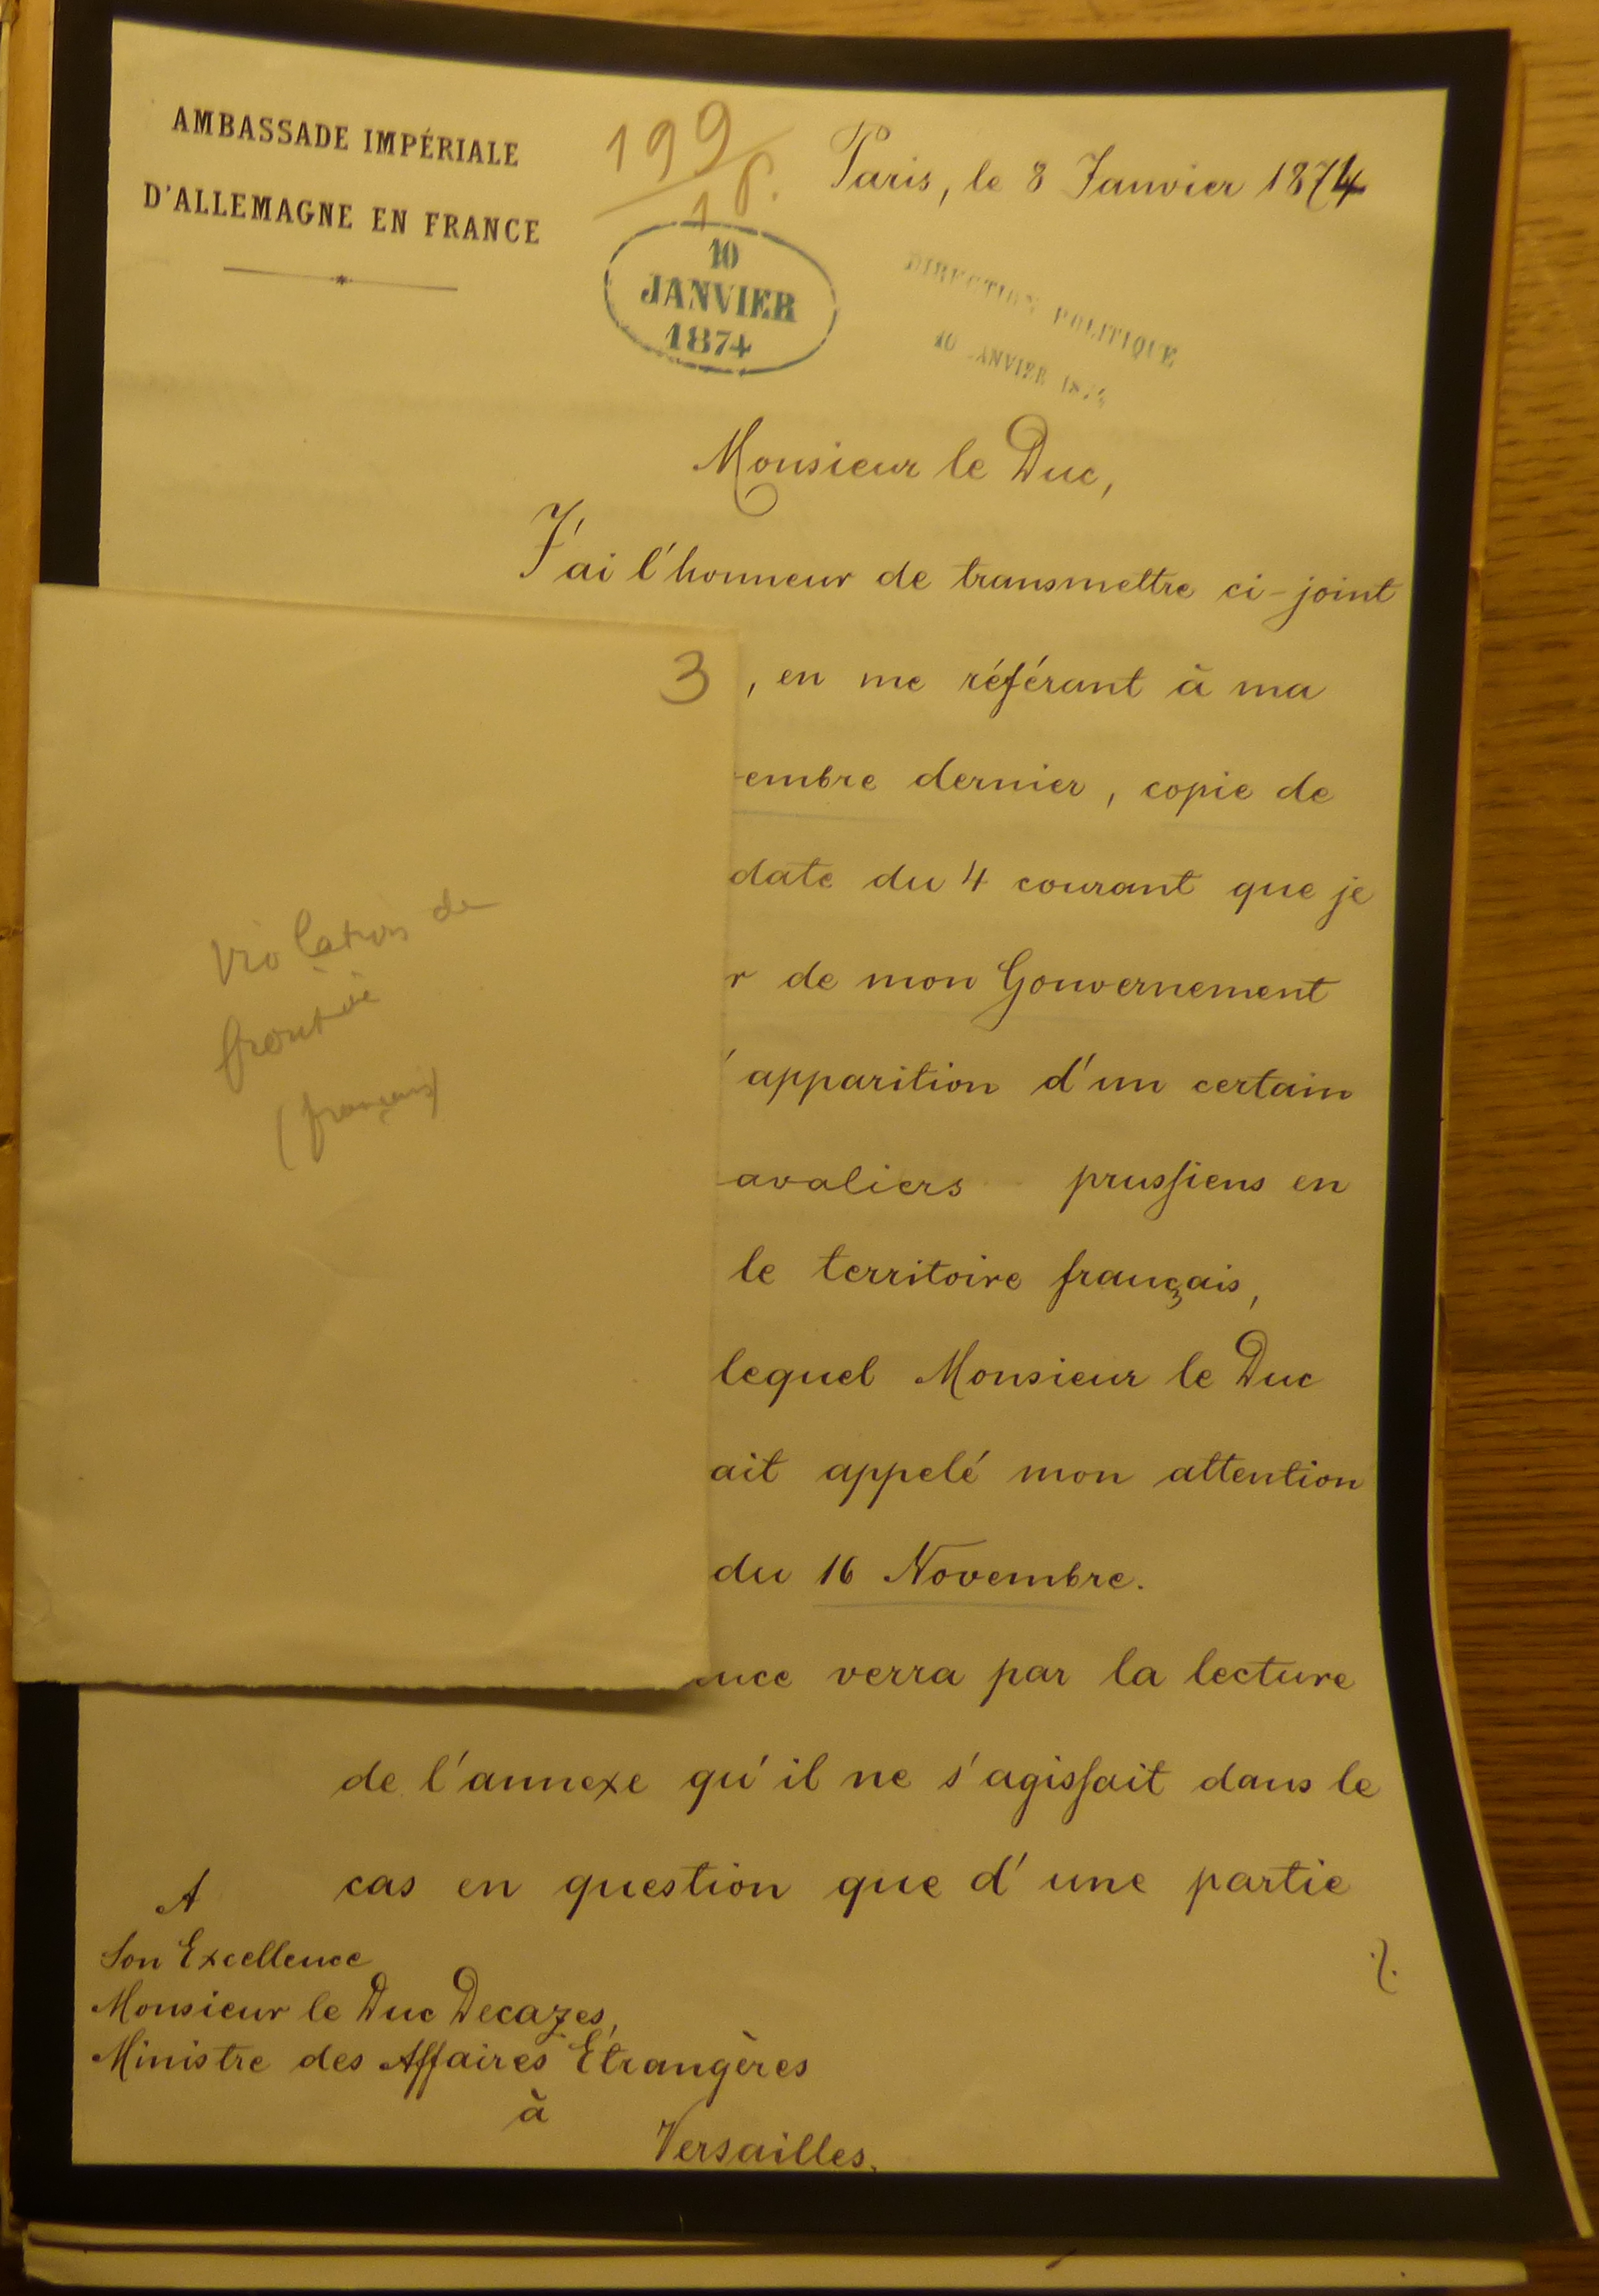 AMBASSADE IMPÉRIALE
D'ALLEMAGNE EN FRANCE
199
Paris, le 8 Janvier 1874
10
JANVIER
1874
DIRECTION POLITIQUE
10 JANVIER 1874
Monsieur le Duc,
J'ai l'honneur de transmettre ci-joint
3
, en me référant à ma
embre dernier, copie de
date du 4 courant que je
r de mon Gouvernement
'apparition d'un certain
avaliers prussiens en
le territoire français,
lequel Monsieur le Duc
ait appelé mon attention
du 16 Novembre.
nce verra par la lecture
de l'annexe qu'il ne s'agissait dans le
cas en question que d'une partie
./.
Violation de
frontière
(français)
A
Son Excellence
Monsieur le Duc Decazes,
Ministre des Affaires Étrangères
à
Versailles.